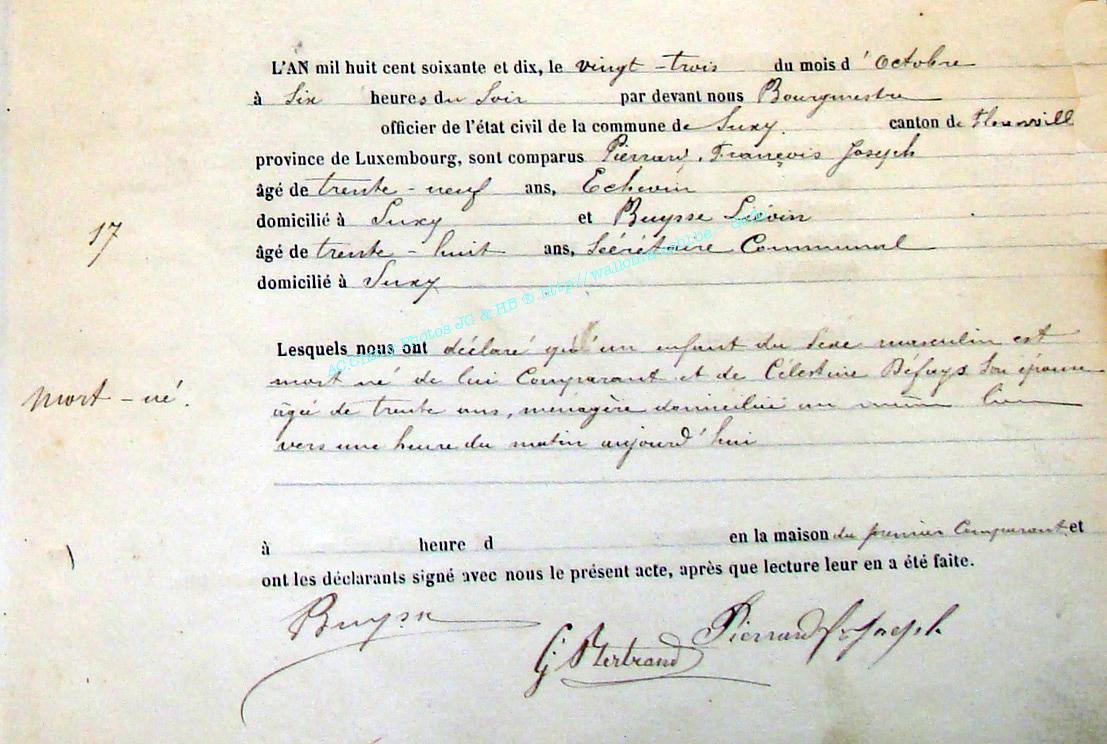 L'AN mil huit cent soixante et dix, le vingt-trois du mois d'Octobre
à Six heures du Soir par devant nous Bourgmestre
officier de l'état civil de la commune de Suxy. canton de Florenvill
province de Luxembourg, sont comparus Pierrard, François Joseph
âgé de trente-neuf ans, Echevin
domicilié à Suxy et Buysse Liévin
17
âgé de trente-huit ans, Sécrétaire Communal
domicilié à Suxy
Lesquels nous ont déclaré qu'un enfant du Sexe masculin est
Mort-né.
mort né de lui Comparant et de Célestine Son épouse
âgée de trente ans, ménagère domiciliée au même lieu
vers une heure du matin aujourd'hui
à heure d en la maison du premier Comparant et
ont les déclarants signé avec nous le présent acte, après que lecture leur en a été faite.
Buysse
Pierrard fr Joseph
G Bertrand
photos JC & HB © http//wallonia